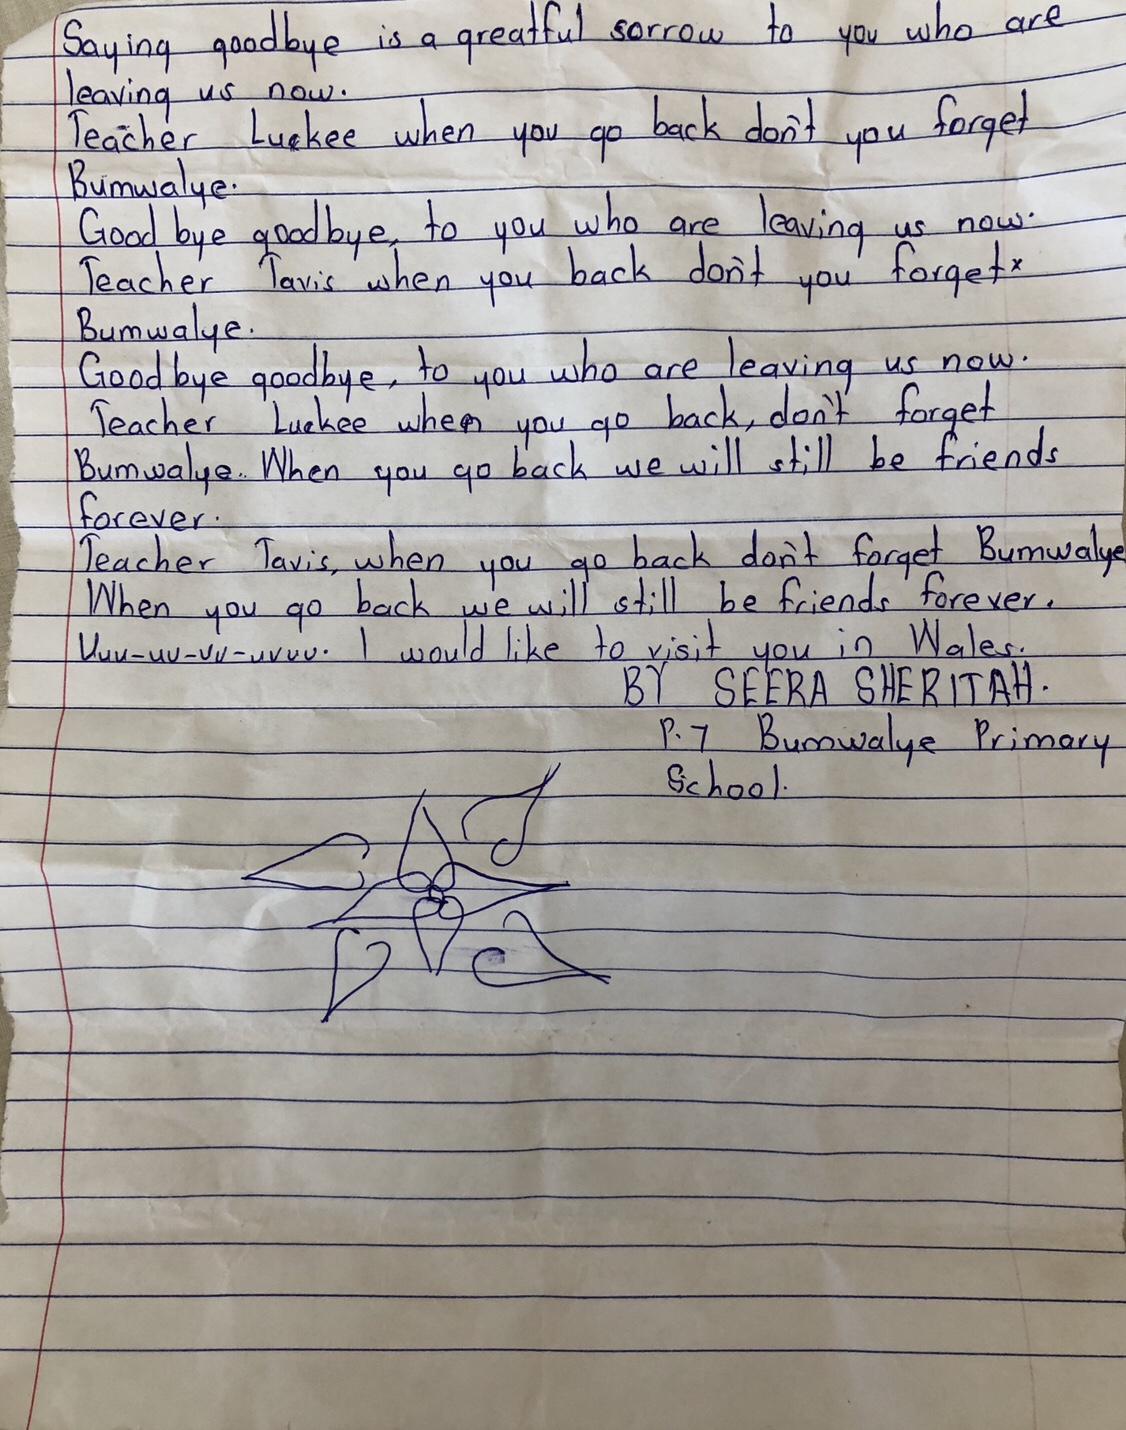 Saying goodbye is a greatful sorrow to you who are
leaving us now.
Teacher Luckee when you go back don't you forget
Bumwalye.
Good bye goodbye, to you who are leaving us now.
Teacher Tavis when you back don't you forget x
Bumwalye.
Good bye goodbye, to you who are leaving us now.
Teacher Luckee when you go back, don't forget
Bumwalye. When you go back we will still be friends
forever.
Teacher Tavis, when you go back don't forget Bumwalye
When you go back we will still be friends forever.
Uuu-uu-uu-uuuu. I would like to visit you in Wales.
BY SEERA SHERITAH.
P.7 Bumwalye Primary
School.